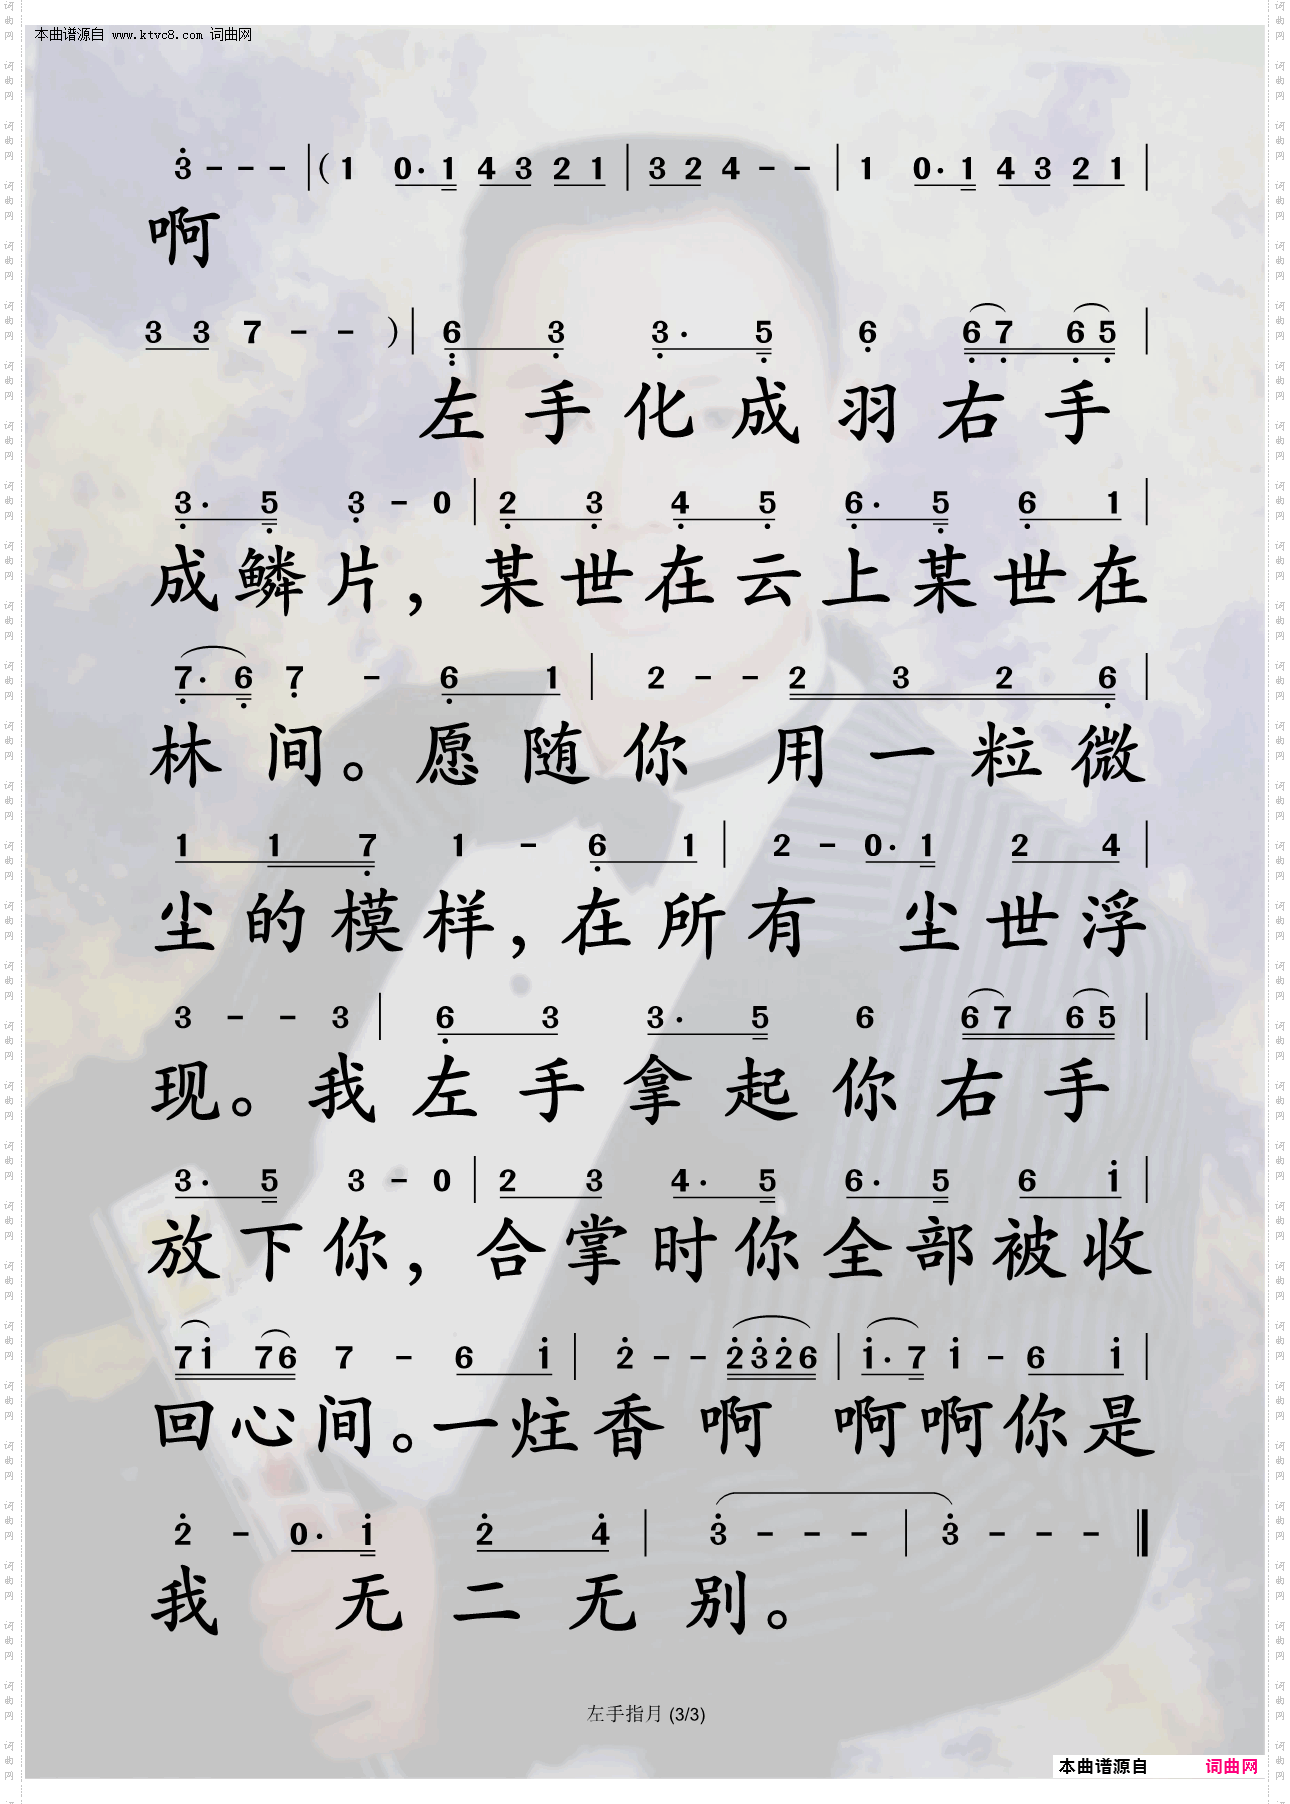 本曲谱源自 www.ktvc8.com 词曲网
3 - - - | ( 1 0· 1 4 3 2 1 | 3 2 4 - - | 1 0· 1 4 3 2 1 |
啊
3 3 7 - - ) | 6 3 3· 5 6 6 7 6 5 |
左手化成羽右手
3· 5 3 - 0 | 2 3 4 5 6· 5 6 1 |
成鳞片，某世在云上某世在
7· 6 7 - 6 1 | 2 - - 2 3 2 6 |
林间。愿随你 用一粒微
1 1 7 1 - 6 1 | 2 - 0· 1 2 4 |
尘的模样，在所有 尘世浮
3 - - 3 | 6 3 3· 5 6 6 7 6 5 |
现。我左手拿起你右手
3· 5 3 - 0 | 2 3 4· 5 6· 5 6 1 |
放下你，合掌时你全部被收
7 1 7 6 7 - 6 1 | 2 - - 2 3 2 6 | 1· 7 1 - 6 1 |
回心间。一炷香啊 啊啊你是
2 - 0· 1 2 4 | 3 - - - | 3 - - - ‖
我 无二无别。
左手指月 (3/3)
本曲谱源自 词曲网